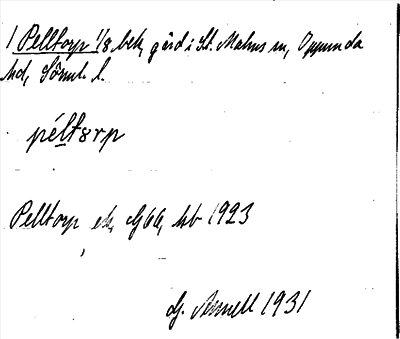 1 Pelltorp 1/8 bek, gård i St. Malms sn, Oppunda
hd, Sörml. l.
péltɜrp
Pelltorp ek, GGG, hb 1923
G. Annell 1931